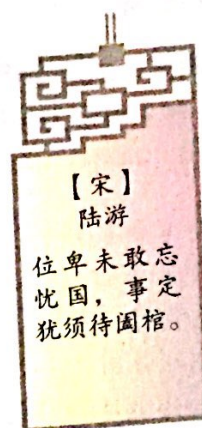 【宋】
陆游
位卑未敢忘
忧国，事定
犹须待阖棺。